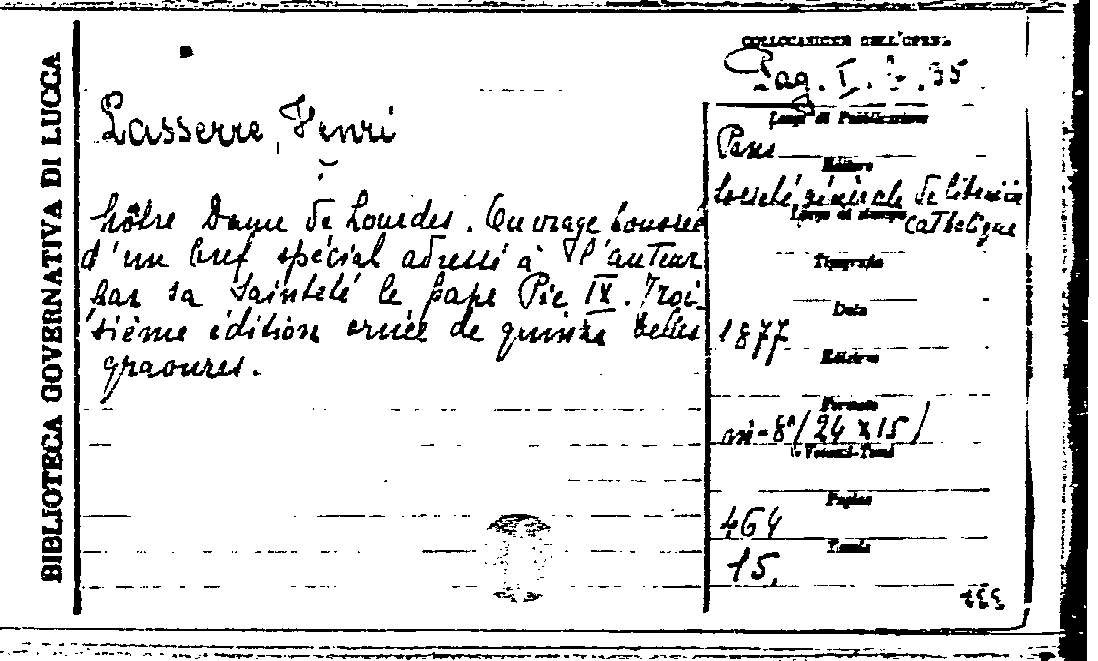 BIBLIOTECA GOVERNATIVA DI LUCCA
COLLOCAZIONE DELL'OPERA
Pag. I. 35
Lasserre, Henri
Nôtre Dame de Lourdes. Ouvrage honoré
d'un bref spécial adressé à l'auteur
par sa Sainteté le pape Pie IX. Troi-
sième édition ornée de quinze belles
gravures.
Luogo di Pubblicazione
Paris
Editore
Société générale de librairie
catholique
Luogo di stampa
Tipografia
Data
1877
Edizione
Formato
in-8° (24 x 15)
Volumi-Tomi
Pagine
464
Tavole
15.